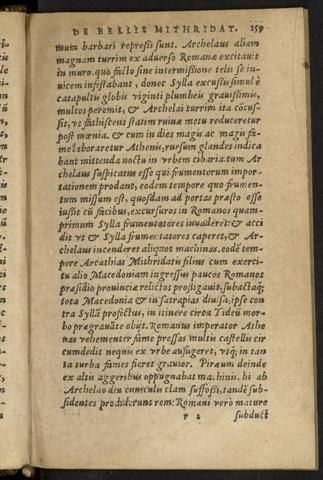 DE BELLIS MITHRIDAT. 159
mum barbari repressi sunt. Archelaus aliam
magnam turrim ex aduerso Romanæ excitauit
in muro. quo facto sine intermissione telis se in-
uicem infestabant, donec Sylla excussis simul è
catapultis globis viginti plumbeis grauissimis,
multos peremit, & Archelai turrim ita cōcus-
sit, vt fathiscens statim ruinæ metu reduceretur
post mœnia. & cum in dies magis ac magis fa-
me laboraretur Athenis, rursum glandes indica
bant mittenda noctu in vrbem cibaria. tum Ar
chelaus suspicatus esse qui frumentorum impor-
tationem prodant, eodem tempore quo frumen-
tum missum est, quosdam ad portas præsto esse
iussit cū facibus, excursuros in Romanos quam-
primum Sylla frumentatores inuaderet: & acci
dit vt & Sylla frumentatores caperet, & Ar-
chelaus incenderet aliquot machinas. eodē tem-
pore Arcathias Mithridatis filius cum exerci-
tu alio Macedoniam ingressus paucos Romanos
præsidio prouinciæ relictos profligauit, subactaq;
tota Macedonia & in satrapias diuisa, ipse con
tra Syllā profectus, in itinere circa Tideū mor-
bo prægrauāte obijt. Romanus imperator Athe
nas vehementer fame pressas multis castellis cir
cumdedit nequis ex vrbe aufugeret, vtq; in tan
ta turba fames fieret grauior. Piræum deinde
ex altis aggeribus oppugnabat machinis. hi ab
Archelao diu cuniculis clam suffossi, tandē sub-
sidentes prodiderunt rem: Romani verò mature
P 2 subduct